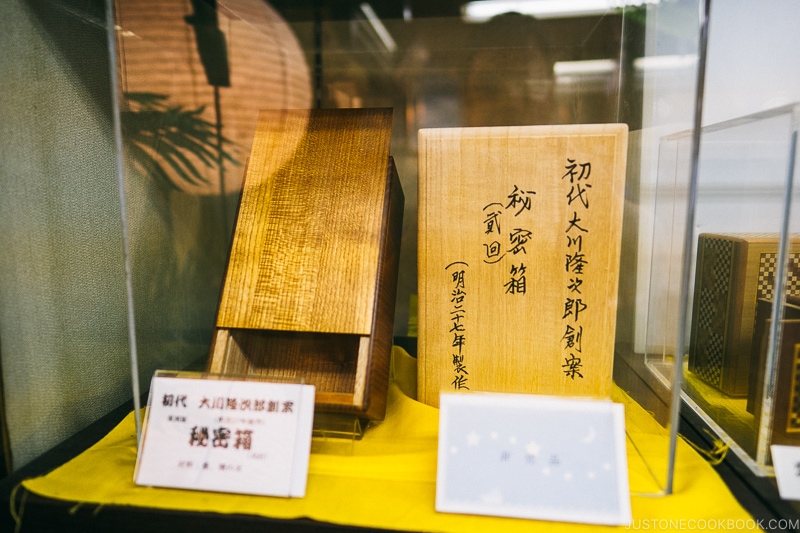 初代 大川隆次郎創案
秘密箱
(貳回)
(明治二十七年製作
初代 大川隆次郎創案
秘密箱
非売品
JUSTONECOOKBOOK.COM